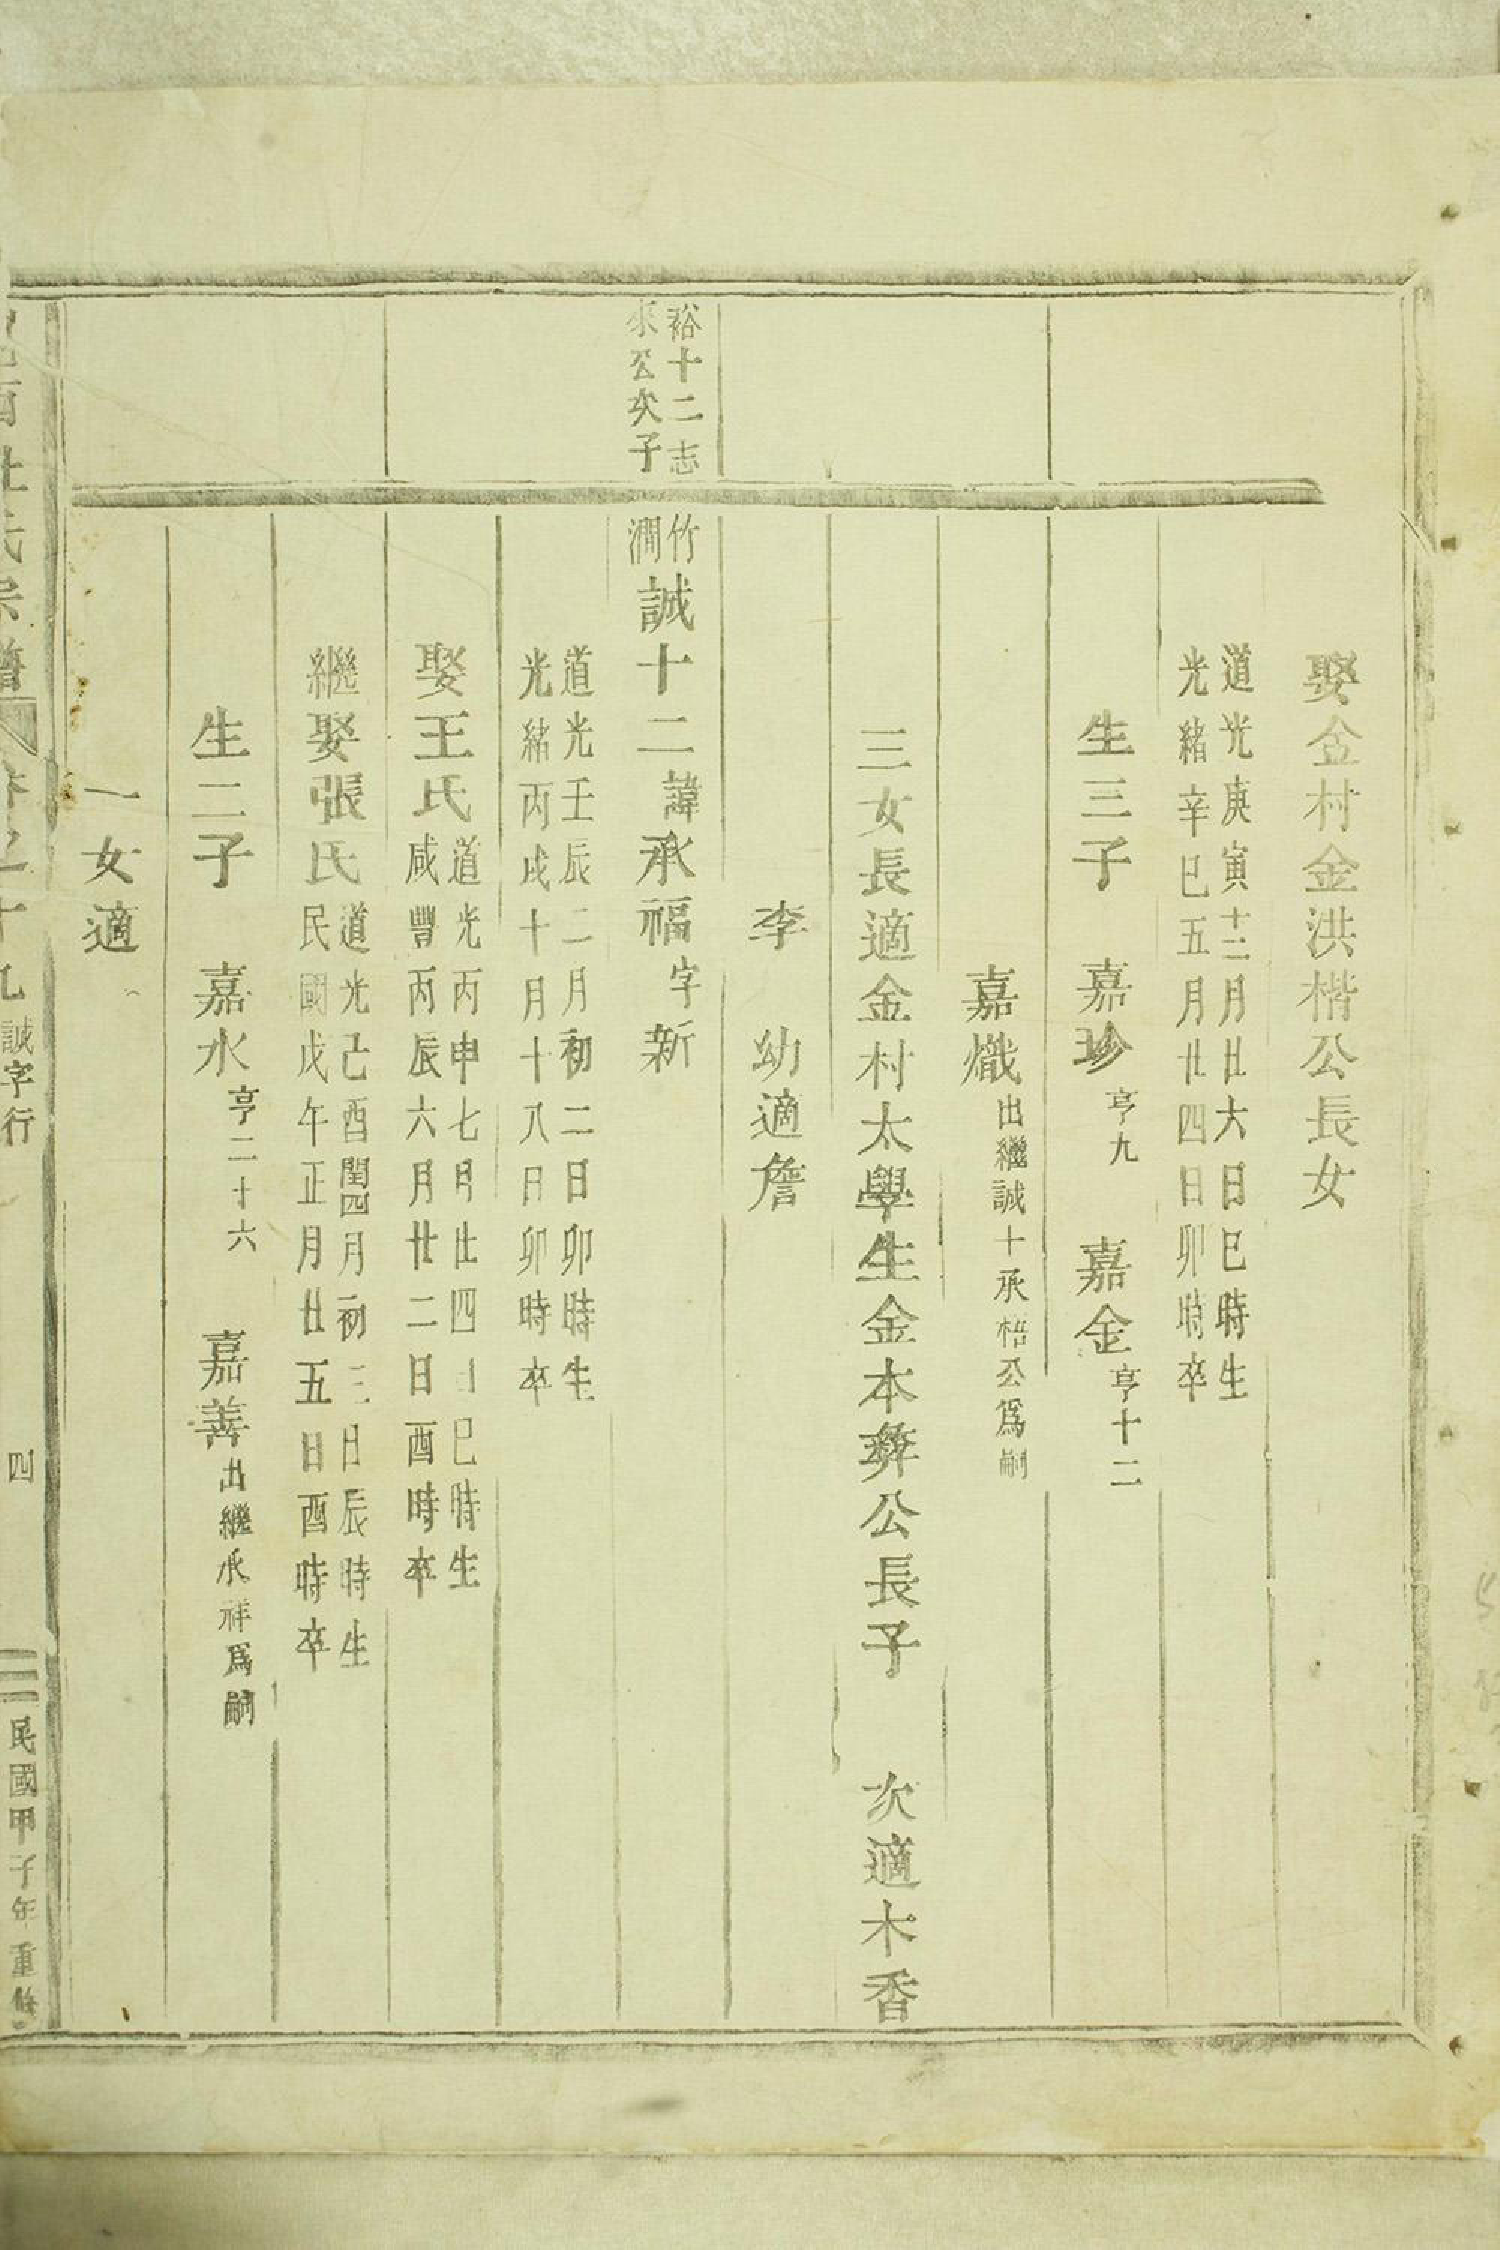 娶金村金洪楷公長女
道光庚寅十二月廿六日巳時生
光緒辛巳五月廿四日卯時卒
生三子　嘉珍亨九　嘉金亨十二
嘉熾出繼誠十承梧公爲嗣
三女長適金村太學生金本彝公長子　次適木香
李　幼適詹
裕十二志
來公次子
竹澗誠十二諱承福字新
道光壬辰二月初二日卯時生
光緒丙戌十月十八日卯時卒
娶王氏
道光丙申七月廿四日巳時生
咸豐丙辰六月廿二日酉時卒
繼娶張氏
道光己酉閏四月初三日辰時生
民國戊午正月廿五日酉時卒
生二子　嘉水亨二十六　嘉善出繼承祥爲嗣
一女適
氏宗譜　卷之十九　誠字行　四　民國甲子年重修